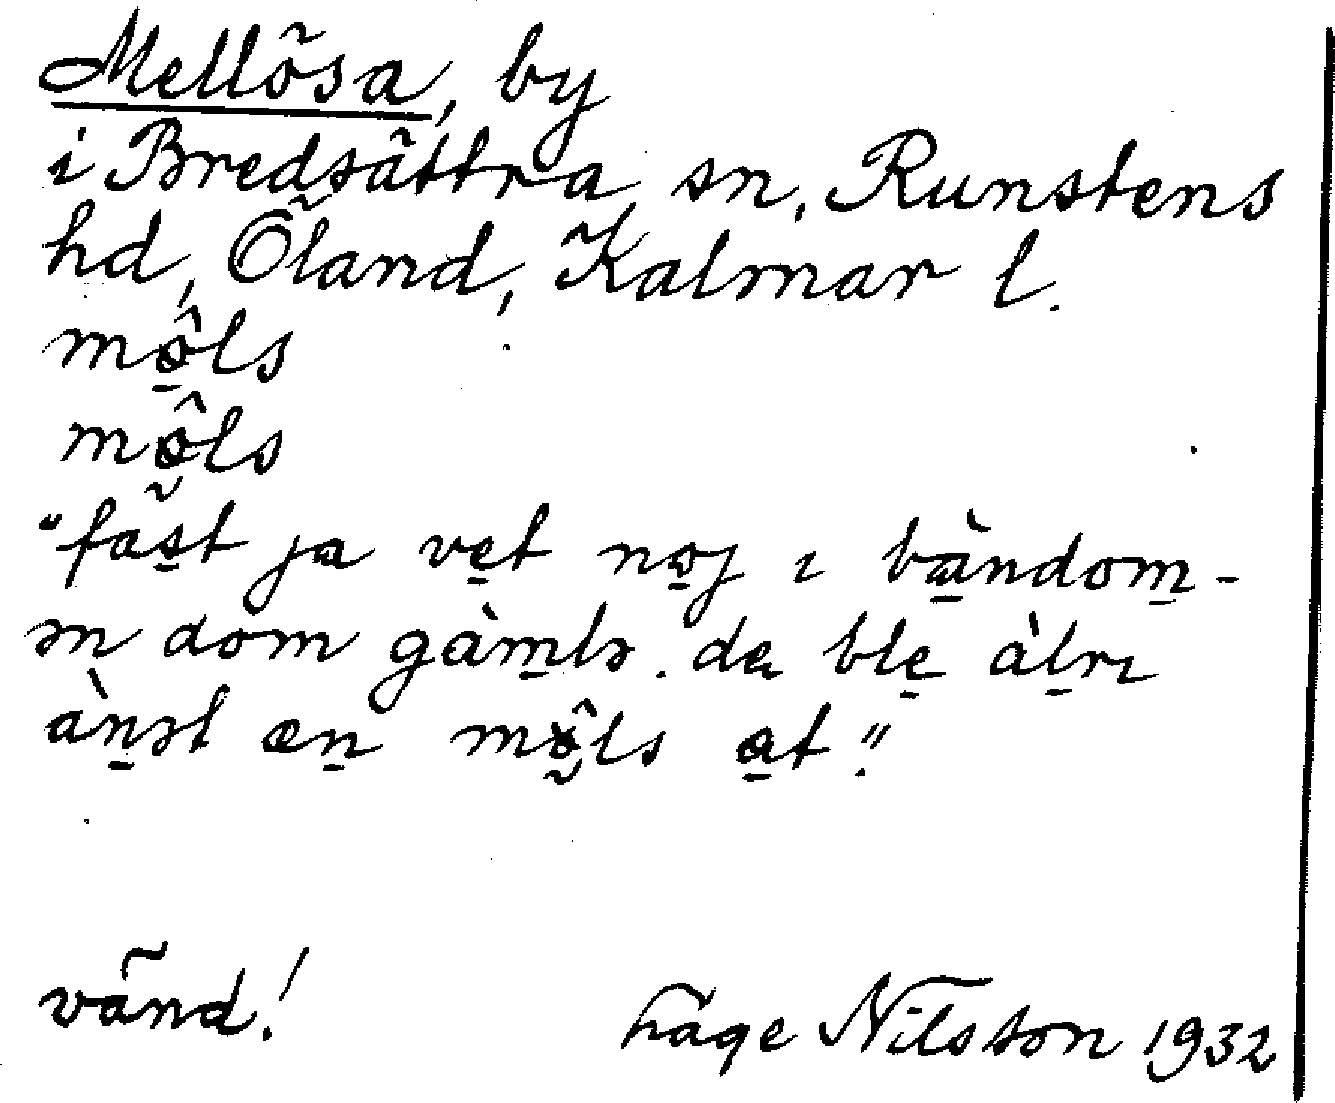 Mellösa, by
i Bredsättra sn, Runstens
hd, Öland, Kalmar l.
mö̂ls
mö̂ls
"fas̱t ja ve̱t no̱j ı bà̱ndom̱-
ən dom gàm̱lə. də ble̱ àḻrı
àṉət æṉ mö̂ls a̱t."
vänd!
Håge Nilsson 1932